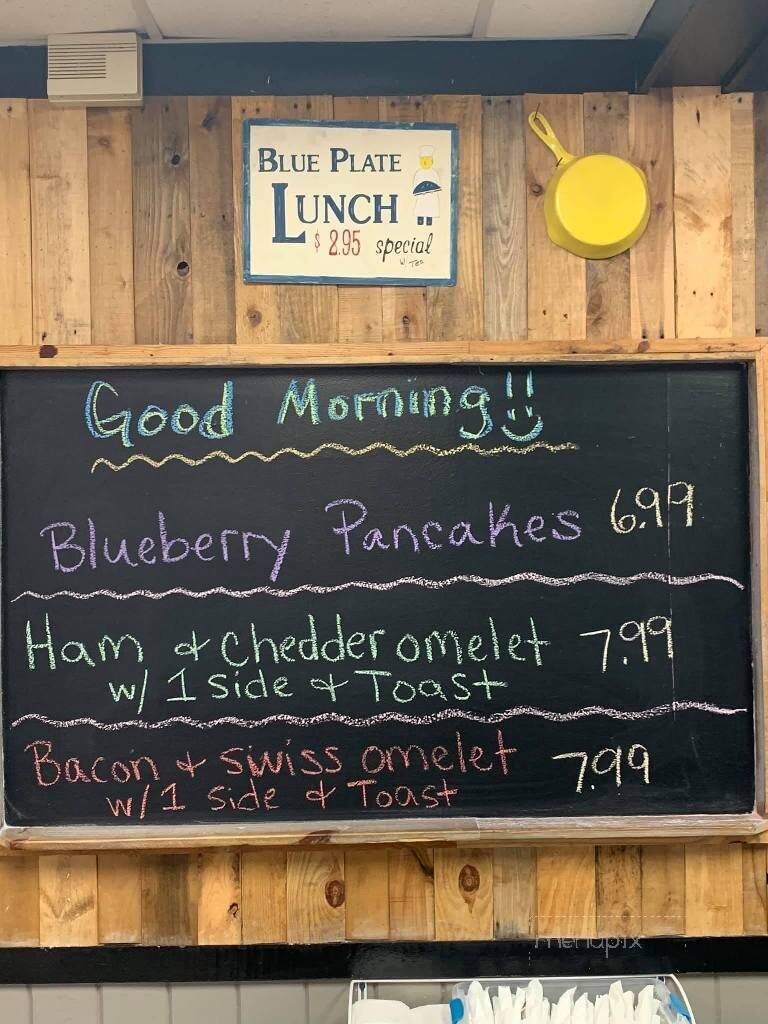 BLUE PLATE
LUNCH
$ 2.95 special
Good Morning!!
Blueberry Pancakes 6.99
Ham & chedder omelet 7.99
w/ 1 side & Toast
Bacon & swiss omelet 7.99
w/ 1 side & Toast
menupix